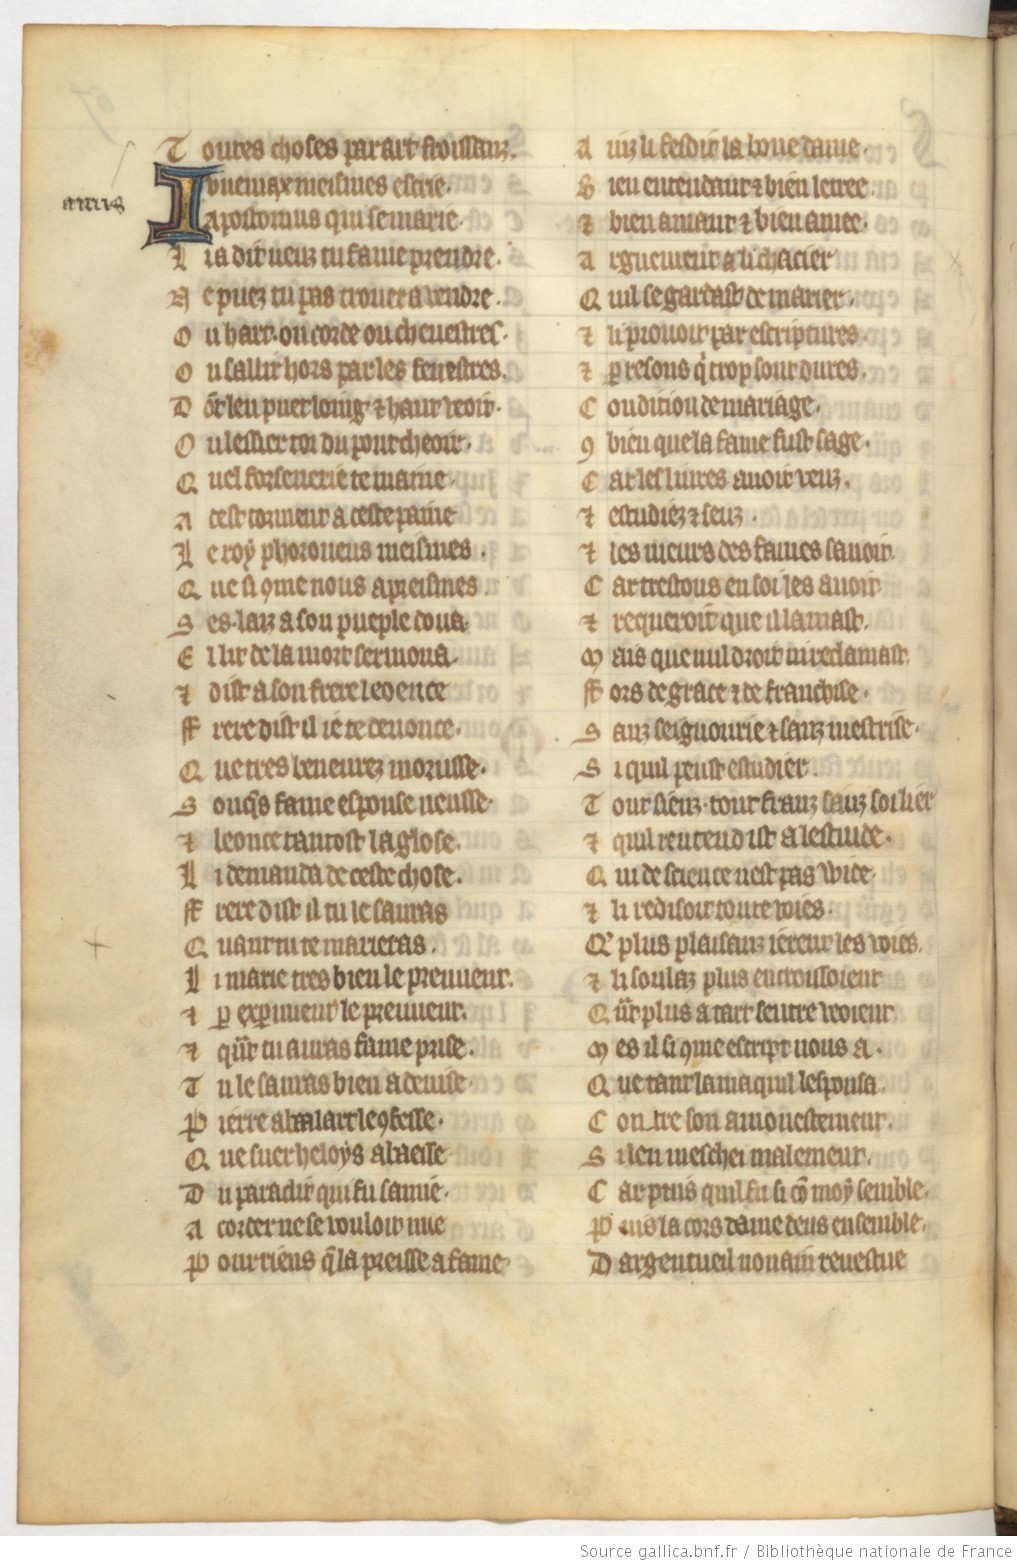 Toutes choses par art froissanz.
Iuuenaux meismes escrie.
A postomus qui se marie.
Li a dit ueuz tu fame prendre.
Ne puez tu pas trouer a uendre.
Ou hart. ou corde ou cheuestres.
Ou sallir hors par les fenestres.
Dõt len puet loing ⁊ haut veoir.
Ou lessier toi du pont cheoir.
Quel forsenerie te maine
A cest torment a ceste paine
Le roy phoroneus meismes.
Que si 9me nous apreismes.
Ses laiz a son pueple dona
El lit de la mort sermona.
⁊ dist a son frere leoence
Frere dist il ie te denonce.
Que tres beneurez morusse.
Sonq̃s fame espouse neusse
⁊ leonce tantost la glose.
Li demanda de ceste chose.
Frere dist il tu le sauras
Quant tu te marieras.
Li marie tres bien le preuuent.
⁊ ꝑ exꝑiment le preuuent.
⁊ qñt tu auras fame prise.
Tu le sauras bien a deuise
Pierre abalart le 9fesse.
Que suer heloys abaesse
Du paraclit qui fu samie.
Acorder ne se vouloit mie
Pour riens q̃ la preisse a fame
amis
Ainz li fesoit la bone dame.
Bien entendant ⁊ bien letree
⁊ bien amant ⁊ bien amee.
Arguement a li chacier
Quil se gardast de marier.
⁊ li prouoit par escriptures.
⁊ ꝑ resons q̃ trop sont dures.
Condition de mariage.
9bien que la fame fust sage.
Car les liures auoit veuz.
⁊ estudiez ⁊ seuz.
⁊ les meurs des fames sauoir
Car trestous en soi les auoit
⁊ requeroit que il lamast.
Mais que nul droit ni reclamast.
Fors de grace ⁊ de franchise.
Sanz seignourie ⁊ sanz mestrise.
Si quil peust estudier.
Tout siens. tout franz sanz soi lier
⁊ quil rentendist a lestuide.
Qui de science nest pas vuide
⁊ li redisoit toute voies.
Q' plus plaisanz ierent les voies.
⁊ li soulaz plus encroissoient
Qñt plus a tart sentre veoient
Mes il si 9me escript nous a.
Que tant lama quil lespousa
Contre son amonestement.
Si len meschei malement.
Car puis quil fu si cõ moy semble.
Par la cors dame deus ensemble.
Dargentueil nonain reuestue